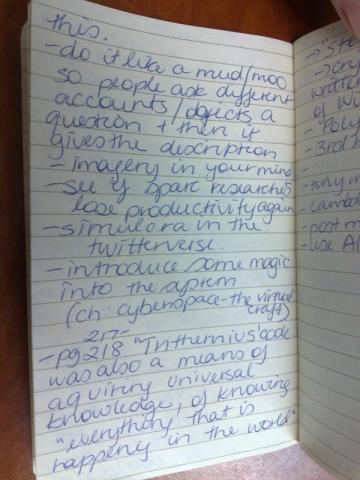 this.
-do it like a mud/moo
so people ask different
accounts/objects a
question + then it
gives the description
- imagery in your mind
-see if sparc researchers
lose productivity again
-simulcra in the
twitterverse.
-introduce some magic
into the
(ch: cyberspace-the virtual
craft)
217-
-pg 218 "Trithemius' code
was also a means of
aquiring universal
knowledge, of knowing
"everything that is
happening in the world"
-3rd
-tiny m
-Lambda
-post m
-use AI